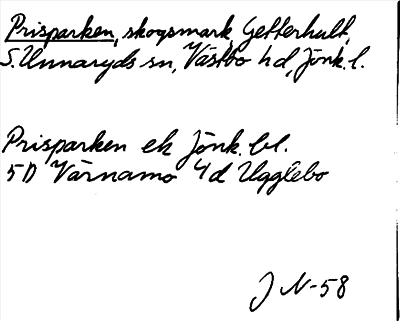 Prisparken, skogsmark, Getterhult,
S. Unnaryds sn, Västbo hd, Jönk. l.
Prisparken ek Jönk. bl.
5D Värnamo 4d Ugglebo
J N-58